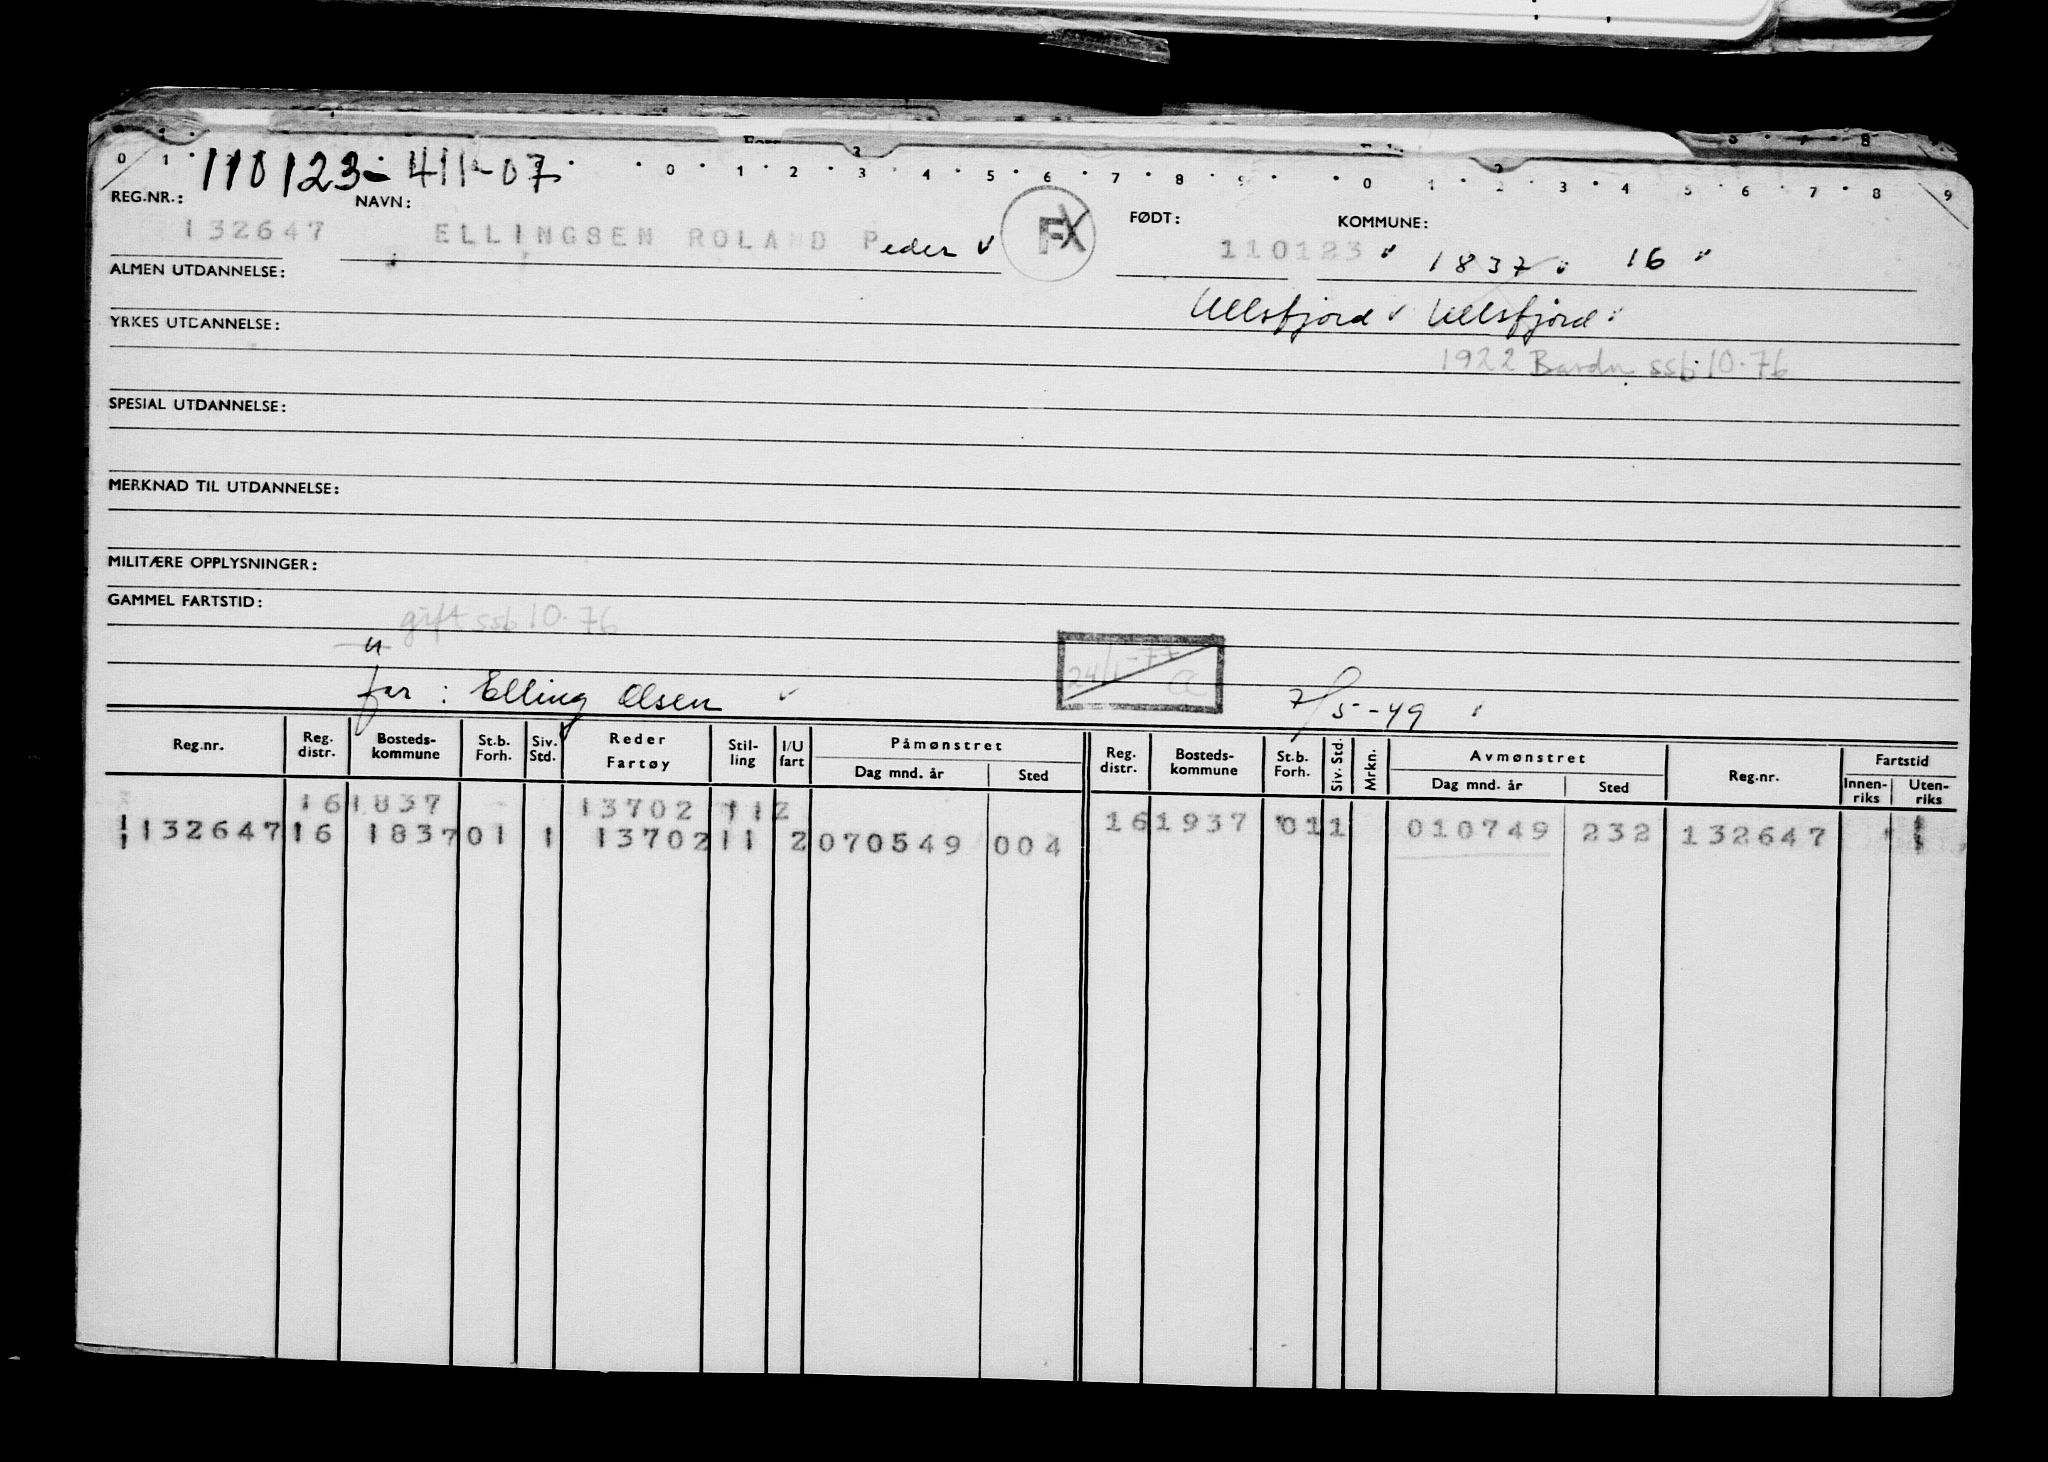 0 1 110123-411-07 0 1 2 3 4 5 6 7 8 9 0 1 2 3 4 5 6 7 8 9
REG.NR.: NAVN: FØDT: KOMMUNE:
132647 ELLINGSEN ROLAND Peder v FX 110123 1837 16
ALMEN UTDANNELSE:
Ullsfjord v Ullsfjord
YRKES UTDANNELSE:
1922 Bardu ssb 10.76
SPESIAL UTDANNELSE:
MERKNAD TIL UTDANNELSE:
MILITÆRE OPPLYSNINGER:
GAMMEL FARTSTID:
gift ssb 10.76
u
24/1-77
far: Elling Olsen 7/5-49
Reg.nr. Reg. distr. Bosteds-kommune St.b. Forh. Siv. Std. Reder Fartøy Stil-ling I/U fart Påmønstret Dag mnd. år Sted Reg. distr. Bosteds-kommune St.b. Forh. Siv. Std. Mrkn. Avmønstret Dag mnd. år Sted Reg.nr. Fartstid Innen-riks Uten-riks
161837 13702 112
132647 16 1837 01 1 13702 11 2 070549 004 161937 011 010749 232 132647 1